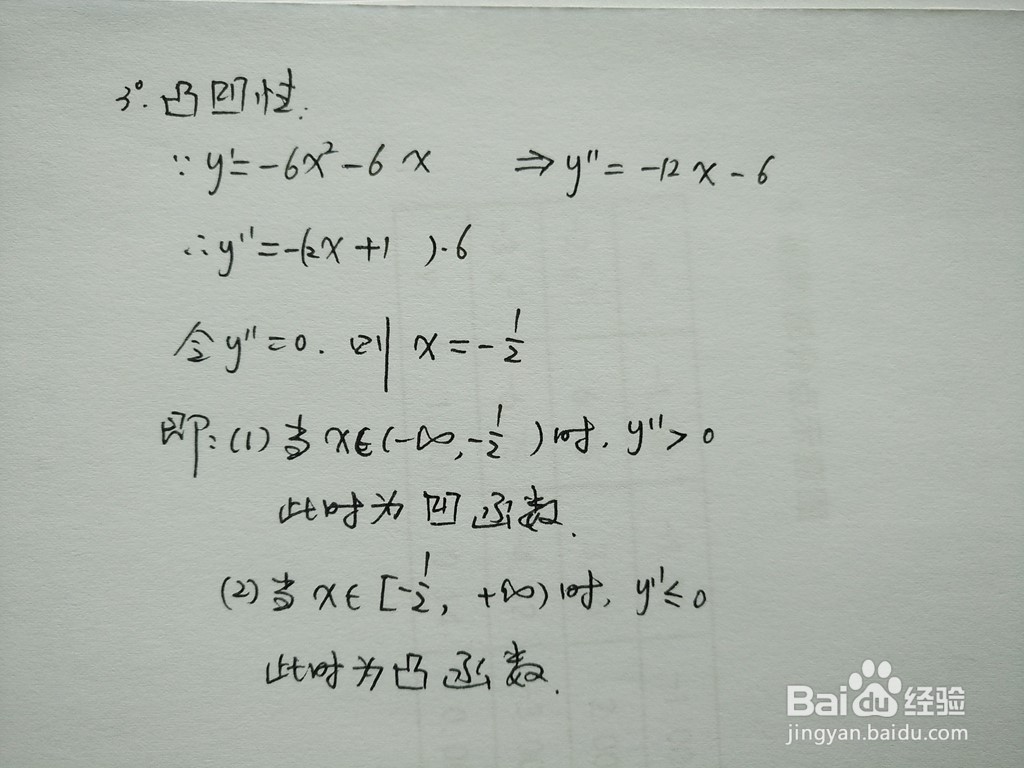 3°. 凸凹性.
∵ y'=-6x²-6x ⇒ y''=-12x-6
∴ y''=-(2x+1 )·6
令 y''=0. 则 x=-1/2
即: (1) 当 x∈(-∞,-1/2 ) 时, y''>0
此时为凹函数.
(2) 当 x∈[-1/2, +∞) 时, y''≤0
此时为凸函数.
Baidu经验
jingyan.baidu.com